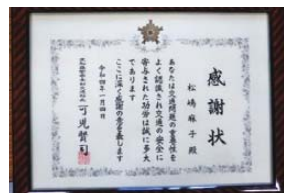 感謝状
松嶋麻子殿
あなたは交通問題の重要性を
よく認識され交通の安全に
寄与された功労は誠に多大
であります
ここに深く感謝の意を表します
令和四年一月四日
可児賢司